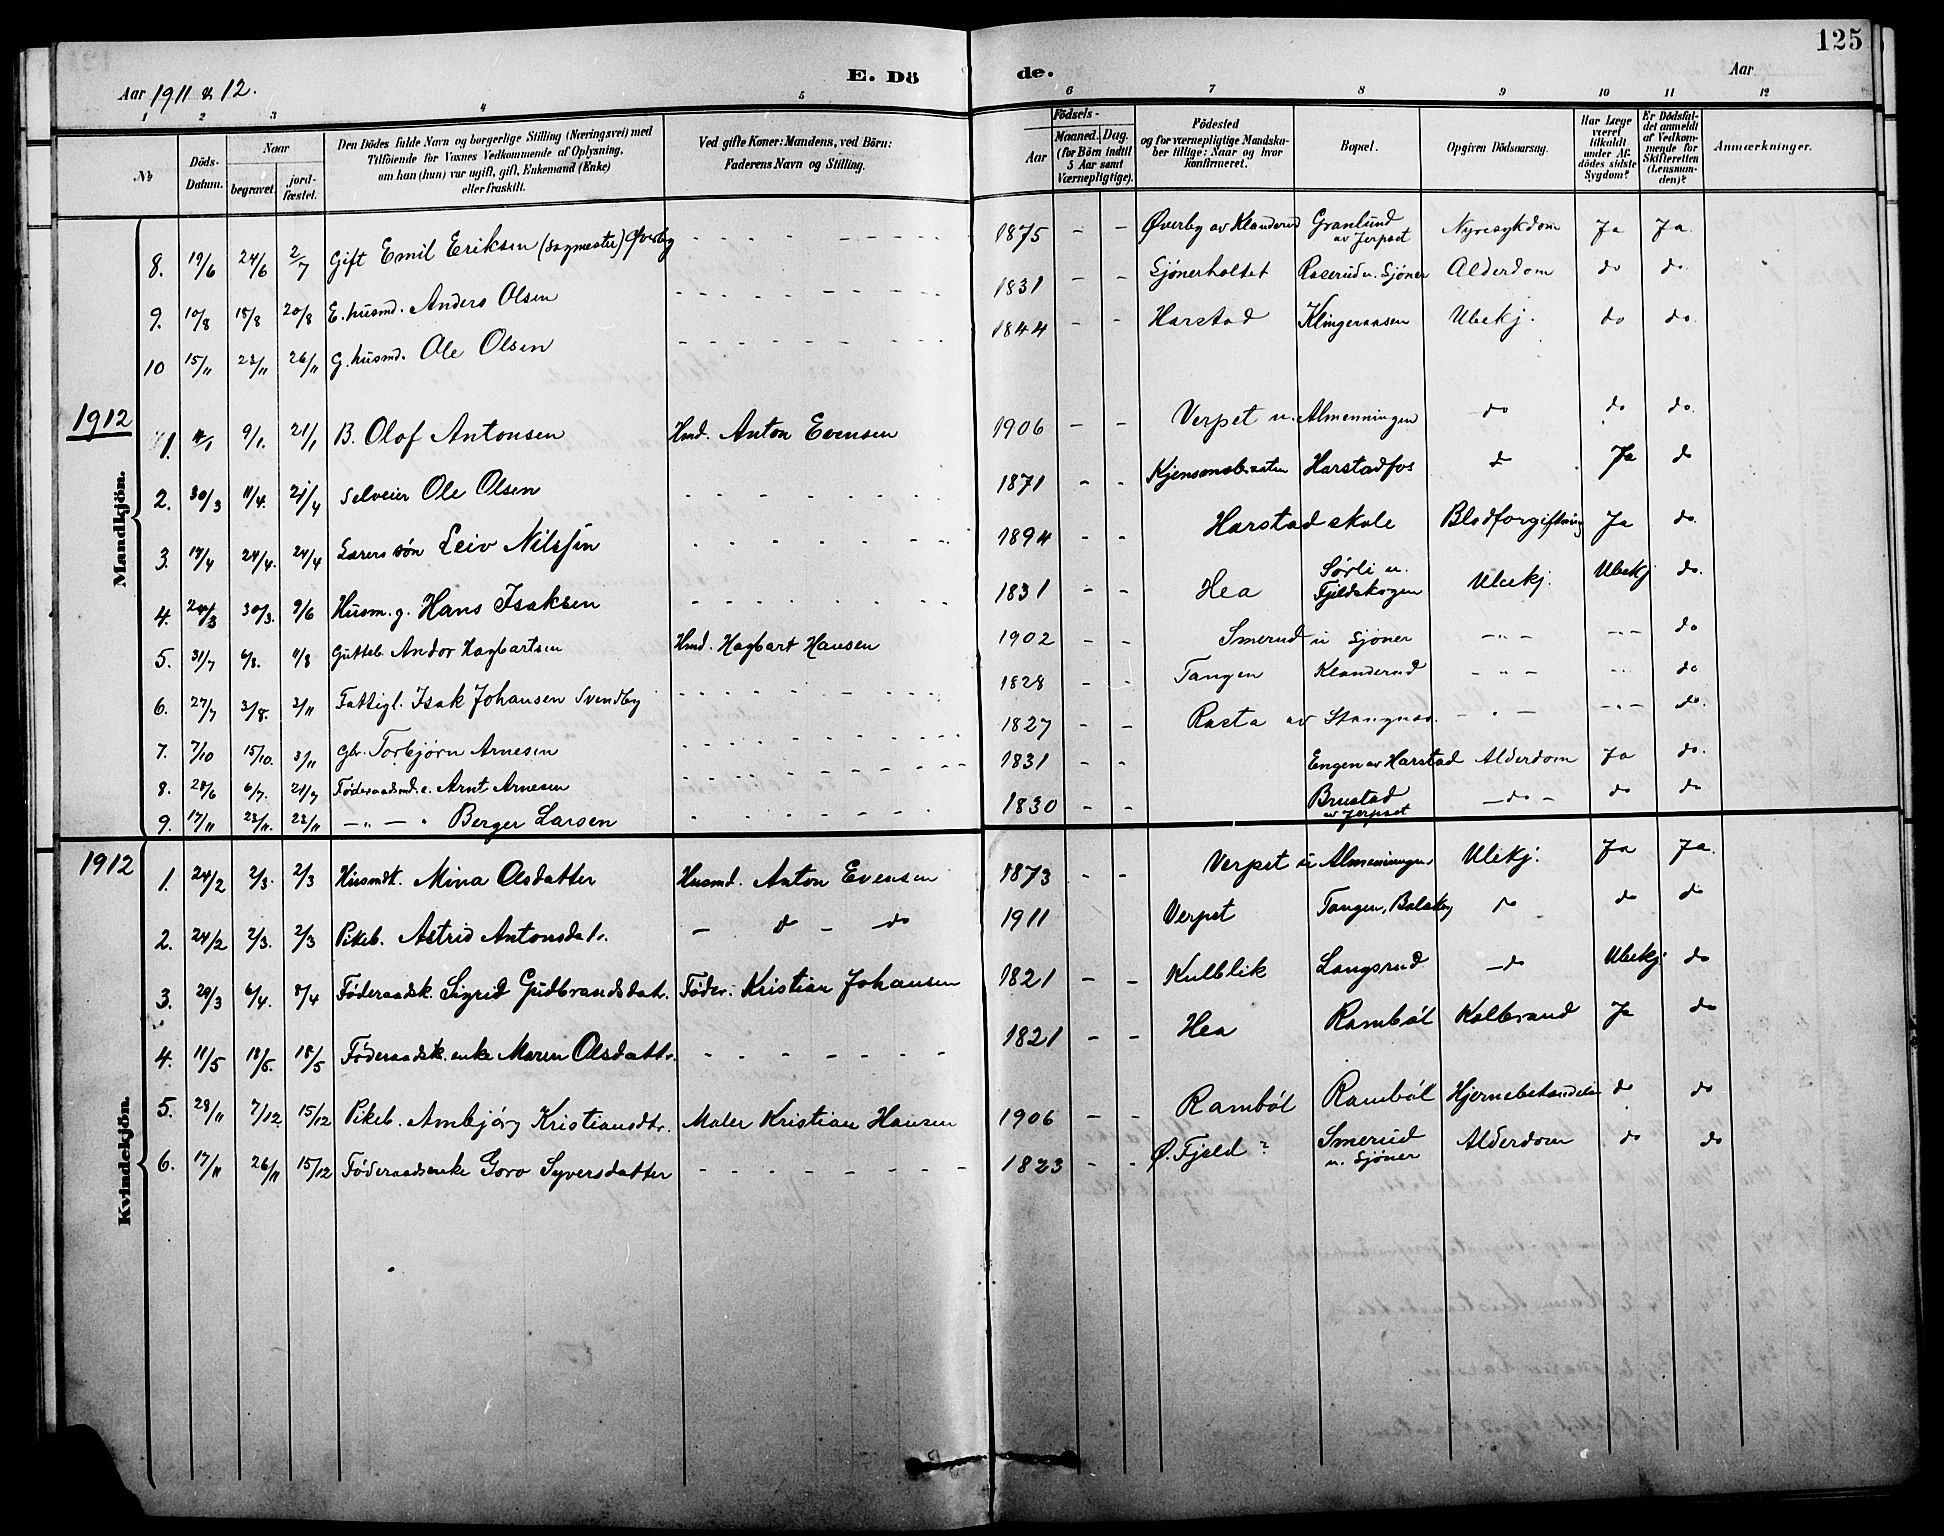 125
E. Dö de.
Aar 1911 & 12. Aar
1 2 3 4 5 6 7 8 9 10 11 12
№
Döds-Datum.
Naar
begravet. jord-fæstet.
Den Dödes fulde Navn og borgerlige Stilling (Næringsvei) med
Tilföiende for Voxnes Vedkommende af Oplysning,
om han (hun) var ugift, gift, Enkemand (Enke)
eller fraskilt.
Ved gifte Koner: Mandens, ved Börn:
Faderens Navn og Stilling.
Födsels-
Aar
Maaned. Dag.
(for Börn indtil
5 Aar samt
Værnepligtige).
Födested
og for værnepligtige Mandska-
ber tillige: Naar og hvor
konfirmeret.
Bopæl.
Opgiven Dödsaarsag.
Har Læge
været
tilkaldt
under Af-
dödes sidste
Sygdom?
Er Dödsfal-
det anmeldt
af Vedkom-
mende for
Skifteretten
(Lensman-
den)?
Anmærkninger.
8. 19/6 24/6 2/7 Gift Emil Eriksen (sagmester) Øverby - - - 1875 - - Øverby av Klanderud Granlund av Jerpset Nyresykdom Ja Ja
9. 10/8 18/8 20/8 E. husmd. Anders Olsen - - - 1831 - - Sjönerholtet Roserud u. Sjöner Alderdom do do.
10 15/11 23/11 26/11 G. husmd. Ole Olsen - - - 1844 - - Harstad Klingeraasen Ubekj. do do.
1912
Mandkjön.
1. 4/1 9/1. 21/1 B. Olof Antonsen Hmd. Anton Evensen 1906 - - Verpet u. Almenningen do do do.
2. 30/3 11/4. 21/4 Selveier Ole Olsen - - - 1871 - - Harstadfos do Ja do
3. 17/4 24/4. 24/4 Lærers sön Leiv Nilssen - - - 1894 - - Harstad skole Blodforgiftning Ja do.
4. 24/3 30/3. 9/6 Husm. g. Hans Isaksen - - - 1831 - - Hea Sørli u. Fjeldskogen Ubekj. Ubekj do.
5. 31/7 6/8. 11/8 Gutteb. Andor Hagbartsen Hmd. Hagbart Hansen 1902 - - Smerud u Sjöner - " - - " - do
6. 27/7 3/8. 3/11 Fattigl. Isak Johansen Svendby - - - 1828 - - Tangen Klanderud - " - - " - do
7. 7/10 15/10. 3/11 Torbjørn Arnesen - - - 1827 - - Rasta av - " - - " - do.
8. 28/6 6/7. 21/7 Föderaadsmd. e. Arnt Arnesen - - - 1831 - - Engen av Harstad Alderdom Ja do.
9. 17/11 23/11. 23/11 - " - " Berger Larsen - - - 1830 - - Brustad av Jerpset - do - do do
1912
Kvindekjön.
1. 24/2 2/3. 2/3 Husmdk. Mina Olsdatter Husmd. Anton Evensen 1873 - - Verpet u Almenningen Ubekj. Ja Ja.
2. 24/2 2/3. 2/3 Pikeb. Astrid Antonsdatr. - do - do 1911 Verpet Tangen, do do do
3. 29/3 6/4. 8/4 Föderaadsk. Sigrid Gudbrandsdatr. Föder. Kristian Johansen 1821 - - Kulblik Langsrud - do Ubekj. do
4. 11/5 18/5. 18/5 Föderaadsk. enke Maren Olsdattr. - - - 1821 - - Hea Rambøl Kolbrand Ja do
5. 28/11 7/12 15/12 Pikeb. Ambjörg Kristiansdtr. Maler Kristian Hansen 1906 - - Rambøl Rambøl do do
6. 17/11 26/11 15/12 Föderaadsenke Goro Syversdatter - - - 1823 - - Ø. Fjeld ? Smerud u. Sjöner Alderdom do do